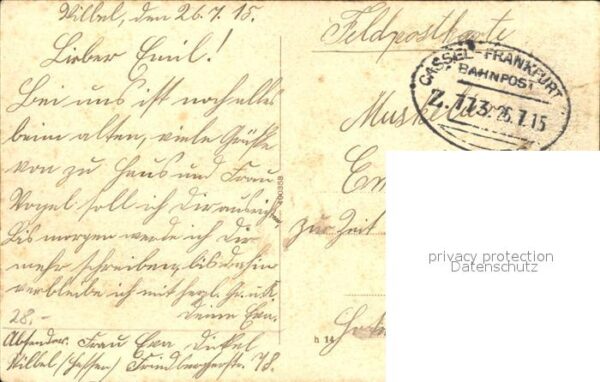 Vilbel, den 26.7.15.
Lieber Emil!
Bei uns ist noch alles
beim alten, viele Grüße
von zu Haus und Frau
Vogel soll ich Dir ausrichten,
bis morgen werde ich Dir
mehr schreiben, bis dahin
verbleibe ich mit herzl. Gr. u. K.
Deine Eva.
28.-
Absender: Frau Eva Dickel
Vilbel (Hessen) Friedbergerstr. 78.
Feldpostkarte
CASSEL-FRANKFURT
BAHNPOST
Z.773. 26.7.15
zur Zeit
h 14
privacy protection
Datenschutz